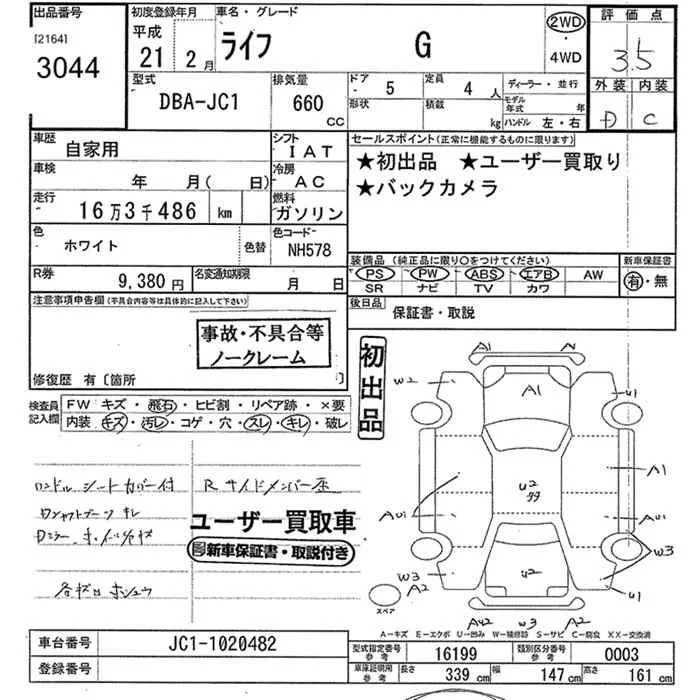 出品番号 [2164] 3044
初度登録年月 平成 21年 2月
車名・グレード ライフ G
2WD・4WD
評価点 3.5
外装 D 内装 C
型式 DBA-JC1
排気量 660 CC
ドア 5 定員 4人
形状 積載 kg
ディーラー・並行
モデル年式 年
ハンドル 左・右
車歴 自家用
シフト IAT
車検 年 月( 日)
冷房 AC
走行 16万3千486 km
燃料 ガソリン
色 ホワイト 色替
色コード NH578
R券 9,380円
名変通知期限 月 日
セールスポイント(正常に機能するものに限ります)
★初出品 ★ユーザー買取り
★バックカメラ
装備品(純正品に限り○をつけてください)
PS PW ABS エアB AW
SR ナビ TV カワ
新車保証書 有・無
後日品 保証書・取説
注意事項申告欄(不具合内容等は具体的に記入して下さい)
事故・不具合等
ノークレーム
修復歴 有〔箇所 〕
初出品
検査員記入欄
FW キズ・飛石・ヒビ割・リペア跡・×要
内装 キズ・汚レ・コゲ・穴・スレ・キレ・破レ
ハンドル シートカバー付
Rサイドメンバー歪
ユーザー買取車
新車保証書・取説付き
A1 A1
W2 U1
A1
U2
A1
W3 W3
A2 U2 U1
スペア
W3 A2
A-キズ E-エクボ U-凹み W-補修跡 S-サビ C-腐食 XX-交換済
車台番号 JC1-1020482
登録番号
型式指定番号 参考 16199
類別区分番号 参考 0003
車庫証明用 参考 長さ 339 cm 幅 147 cm 高さ 161 cm